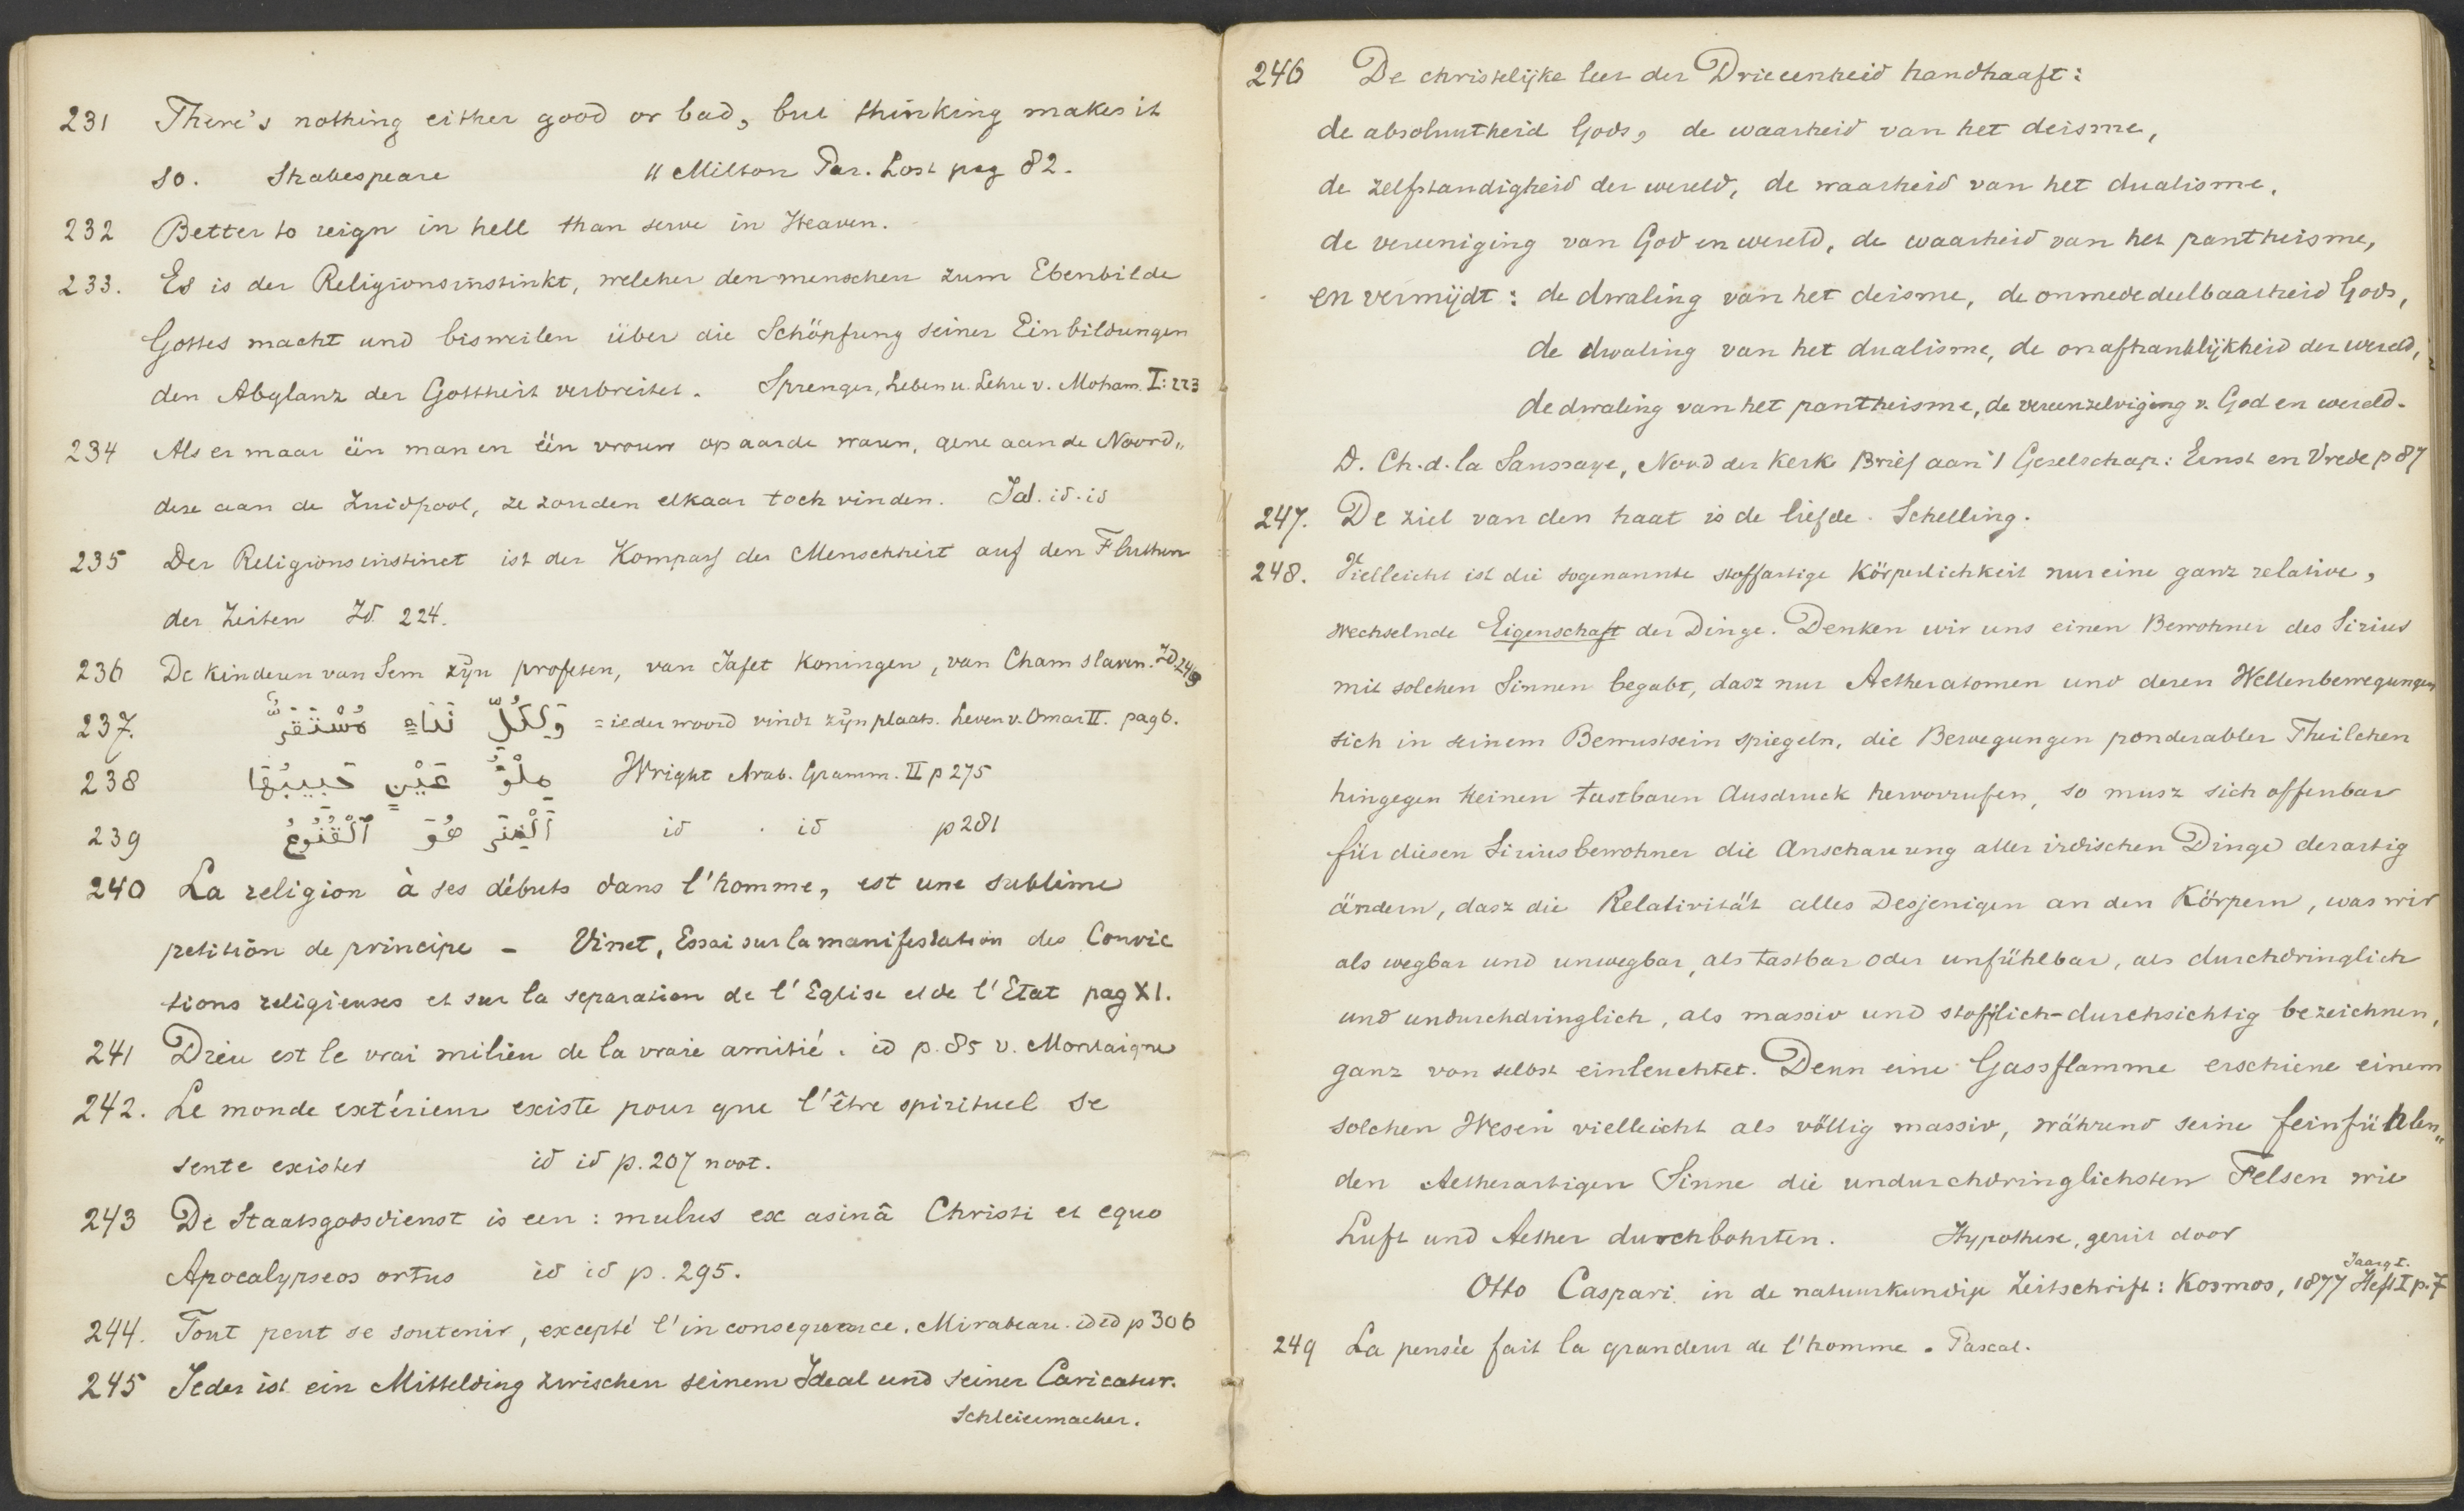 231 There's nothing either good or bad, but thinking makes it
so. Shakespeare " Milton Par. Lost pag 82.
232 Better to reign in hell than serve in Heaven.
233. Es is der Religionsinstinkt, welcher den menschen zum Ebenbilde
Gottes macht und bisweilen über die Schöpfung seiner Einbildungen
den Abglanz der Gottheit verbreitet. Sprenger, Leben u. Lehre v. Moham. I: 223
234 Als er maar één man en één vrouw op aarde waren, gene aan de Noord„
deze aan de Zuidpool, ze zouden elkaar toch vinden. Tal. id. id
235 Der Religionsinstinct ist der Kompass der Menschheit auf den Fluthen
der Zeiten Id 224.
236 De kinderen van Sem zijn profeten, van Jafet Koningen, van Cham slaven. Id. 249
237. وَلِكُلِّ نَبَاءٍ مُسْتَقَرٌّ = ieder woord vindt zijn plaats. Leven v. Omar II. pag 6.
238 مِلْؤُ عَيْنٍ حَبِيبُهَا Wright Arab. Gramm. II p 275
239 اَلْغِنَى هُوَ ٱلْقُنُوعُ id . id p 281
240 La religion à ses débuts dans l'homme, est une sublime
petition de principe - Vinet, Essai sur la manifestation des Convic
tions religieuses et sur la separation de l'Eglise et de l'Etat pag XI.
241 Dieu est le vrai milieu de la vraie amitié. id p. 85 v. Montaigne
242. Le monde extérieur existe pour que l'être spirituel se
sente exister id id p. 207 noot.
243 De Staatsgodsdienst is een: mulus ex asinâ Christi et equo
Apocalypseos ortus id id p. 295.
244. Tout peut se soutenir, excepté l'inconsequence. Mirabeau. id id p 306
245 Jeder ist ein Mittelding zwischen seinem Ideal und seiner Caricatur.
Schleiermacher.
246 De christelijke leer der Drieeenheid handhaaft:
de absoluutheid Gods, de waarheid van het deisme,
de zelfstandigheid der wereld, de waarheid van het dualisme,
de vereeniging van God en wereld, de waarheid van het pantheisme,
en vermijdt: de dwaling van het deisme, de onmededeelbaarheid Gods,
de dwaling van het dualisme, de onafhanklijkheid der wereld,
de dwaling van het pantheisme, de vereenzelviging v. God en wereld.
D. Ch. d. la Saussaye, Nood der Kerk Brief aan 't Gezelschap: Ernst en Vrede p 87
247. De ziel van den haat is de liefde. Schelling.
248. Vielleicht ist die sogenannte stoffartige Körperlichkeit nur eine ganz relative,
wechselnde Eigenschaft der Dinge. Denken wir uns einen Bewohner des Sirius
mit solchen Sinnen begabt, dasz nur Aetheratomen und deren Wellenbewegungen
sich in seinem Bewustsein spiegeln, die Bewegungen ponderabler Theilchen
hingegen keinen tastbaren Ausdruck hervorrufen, so musz sich offenbar
für diesen Siriusbewohner die Anschauung aller irdischen Dinge derartig
ändern, dasz die Relativität alles Desjenigen an den Körpern, was wir
als wegbar und unwegbar, als tastbar oder unfühlbar, als durchdringlich
und undurchdringlich, als massiv und stofflich-durchsichtig bezeichnen,
ganz von selbst einleuchtet. Denn eine Gassflamme erschiene einem
solchen Wesen vielleicht als völlig massiv, während seine feinfühlen„
den Aetherartigen Sinne die undurchdringlichsten Felsen wie
Luft und Aether durchbohrten. Hypothese, geuit door
Otto Caspari in de natuurkundige Zeitschrift: Kosmos, 1877 Jaarg I. Heft I p. 7
249 La pensée fait la grandeur de l'homme. Pascal.